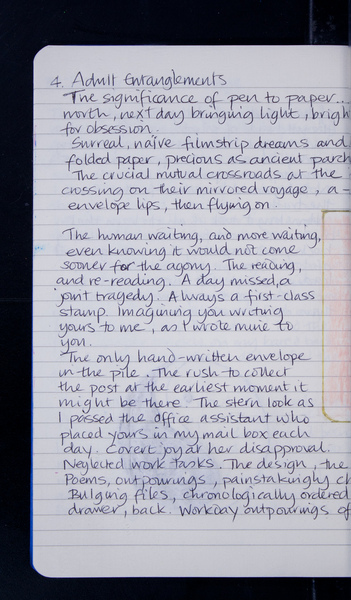 4. Adult Entanglements
The significance of pen to paper..
north, next day bringing light, brigh
for obsession.
Surreal, naïve filmstrip dreams and
folded paper, precious as ancient parch
The crucial mutual crossroads at the
crossing on their mirrored voyage, a -
envelope lips, then flying on.
The human waiting, and more waiting,
even knowing it would not come
sooner for the agony. The reading,
and re-reading. A day missed, a
joint tragedy. Always a first-class
stamp. Imagining you writing
yours to me, as I wrote mine to
you.
The only hand-written envelope
in the pile. The rush to collect
the post at the earliest moment it
might be there. The stern look as
I passed the office assistant who
placed yours in my mail box each
day. Covert joy at her disapproval.
Neglected work tasks. The design, the
Poems, outpourings, painstakingly ch
Bulging files, chronologically ordered
drawer, back. Workday outpourings of